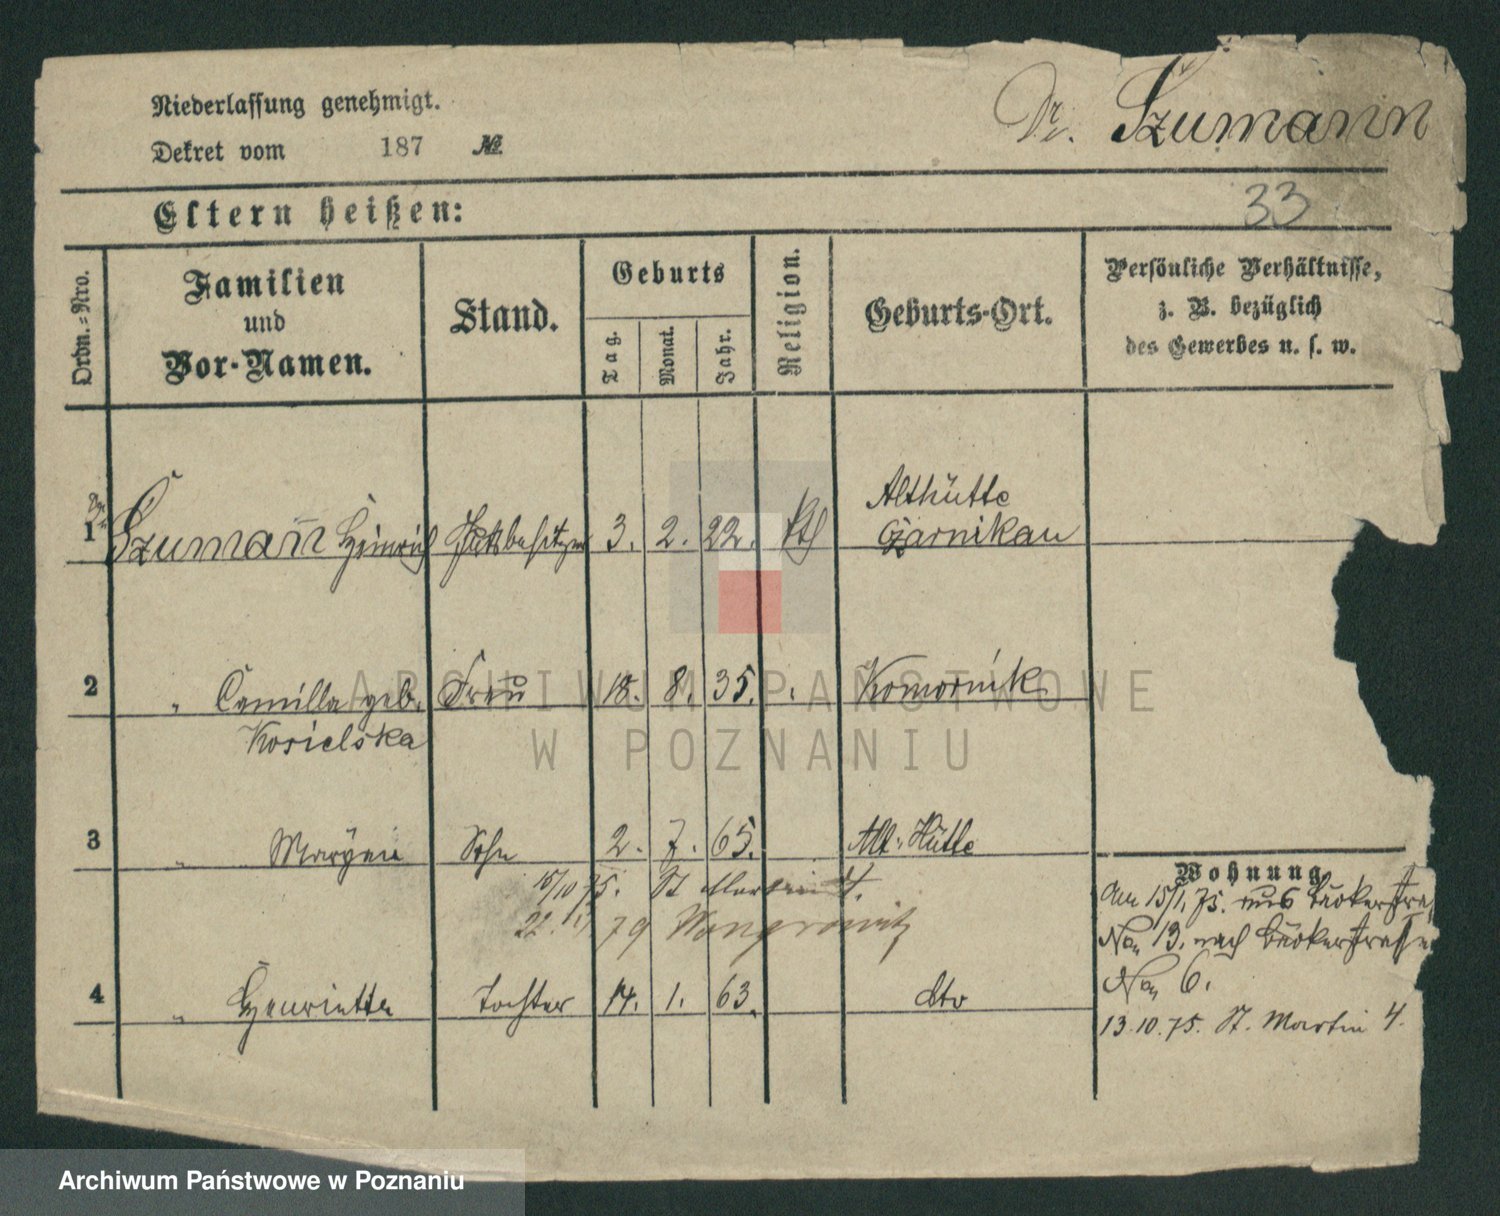 Niederlassung genehmigt.
Dekret vom 187 №
Dr. Szumann
Eltern heißen:
33
Ordn.-Nro.
Familien
und
Vor-Namen.
Stand.
Geburts
Tag.
Monat.
Jahr.
Religion.
Geburts-Ort.
Persönliche Verhältnisse,
z. B. bezüglich
des Gewerbes u. s. w.
Althütte
1 Szumann Heinrich 3. 2. 22. kth Czarnikau
2 " Camilla geb. Frau 18. 8. 35. " Komornik
Kosielska
3 " Maryan Sohn 2. 7. 65. Alt-Hütte
15/10 75. St Martin 4.
22. 79 Wongrowitz
4 " Henriette Tochter 14. 1. 63. dto
Wohnung
Am 15/1. 75. aus Bäckerstra
No 13. nach Bäckerstrasse
No 6.
13.10.75. St. Martin 4.
ARCHIWUM PAŃSTWOWE
W POZNANIU
Archiwum Państwowe w Poznaniu